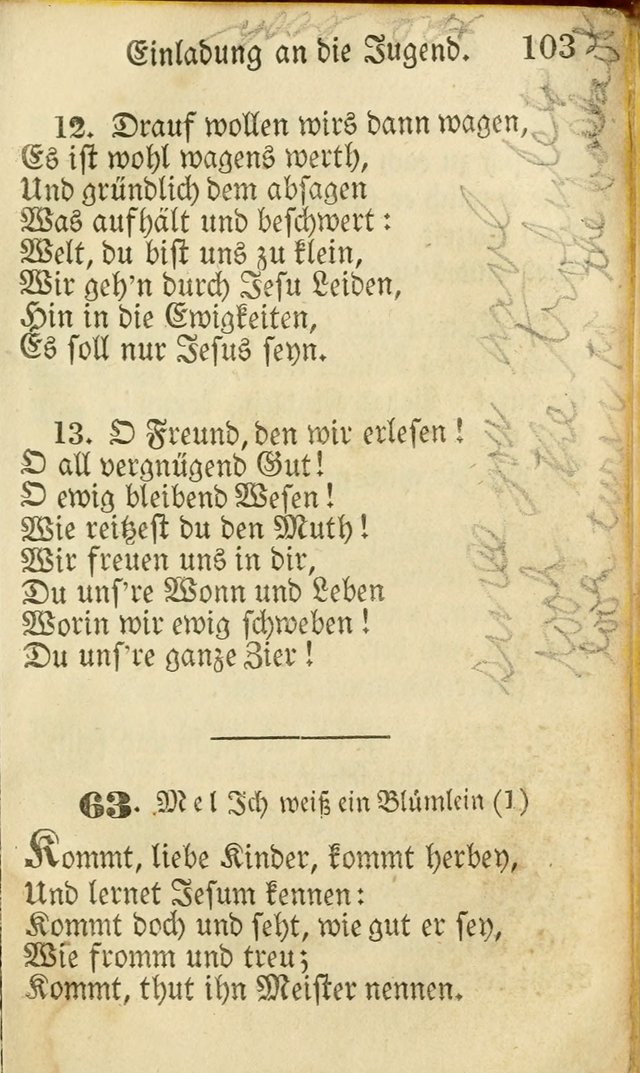 Einladung an die Jugend. 103
12. Drauf wollen wirs dann wagen,
Es ist wohl wagens werth,
Und gründlich dem absagen
Was aufhält und beschwert:
Welt, du bist uns zu klein,
Wir geh'n durch Jesu Leiden,
Hin in die Ewigkeiten,
Es soll nur Jesus seyn.
13. O Freund, den wir erlesen!
O all vergnügend Gut!
O ewig bleibend Wesen!
Wie reitzest du den Muth!
Wir freuen uns in dir,
Du uns're Wonn und Leben
Worin wir ewig schweben!
Du uns're ganze Zier!
63. Mel Ich weiß ein Blümlein (1)
Kommt, liebe Kinder, kommt herbey,
Und lernet Jesum kennen:
Kommt doch und seht, wie gut er sey,
Wie fromm und treu;
Kommt, thut ihn Meister nennen.
since you have
took the
love turn to the